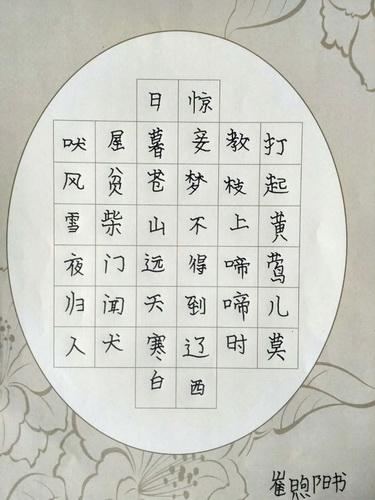 打起黄莺儿莫
教枝上啼啼时
惊妾梦不得到辽西
日暮苍山远天寒白
屋贫柴门闻犬
吠风雪夜归人
崔煦阳书